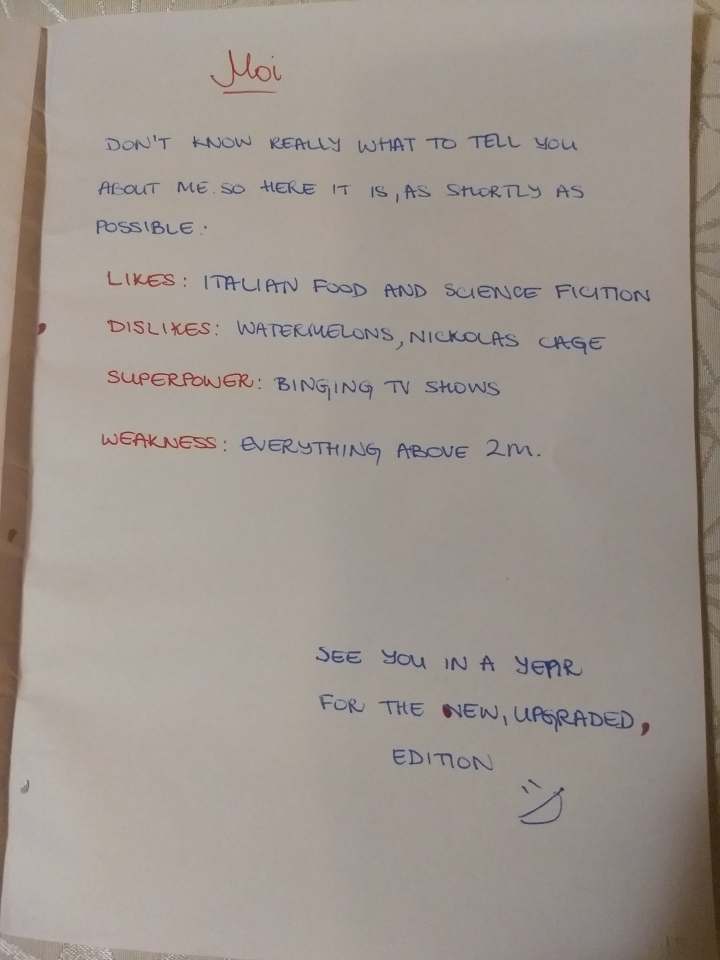 Moi
DON'T KNOW REALLY WHAT TO TELL YOU
ABOUT ME. SO HERE IT IS, AS SHORTLY AS
POSSIBLE:
LIKES: ITALIAN FOOD AND SCIENCE FICITION
DISLIKES: WATERMELONS, NICKOLAS CAGE
SUPERPOWER: BINGING TV SHOWS
WEAKNESS: EVERYTHING ABOVE 2M.
SEE YOU IN A YEAR
FOR THE NEW, UPGRADED,
EDITION